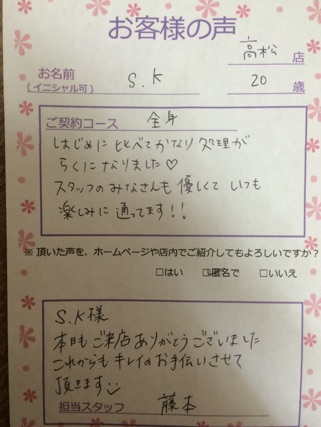 お客様の声
高松 店
お名前
(イニシャル可) S.K 20 歳
ご契約コース 全身
はじめに比べてかなり処理が
らくになりました♡
スタッフのみなさんも優しくていつも
楽しみに通ってます!!
※頂いた声を、ホームページや店内でご紹介してもよろしいですか?
□はい ☑匿名で □いいえ
S.K様
本日もご来店ありがとうございました
これからもキレイのお手伝いさせて
頂きます☺
担当スタッフ 藤本